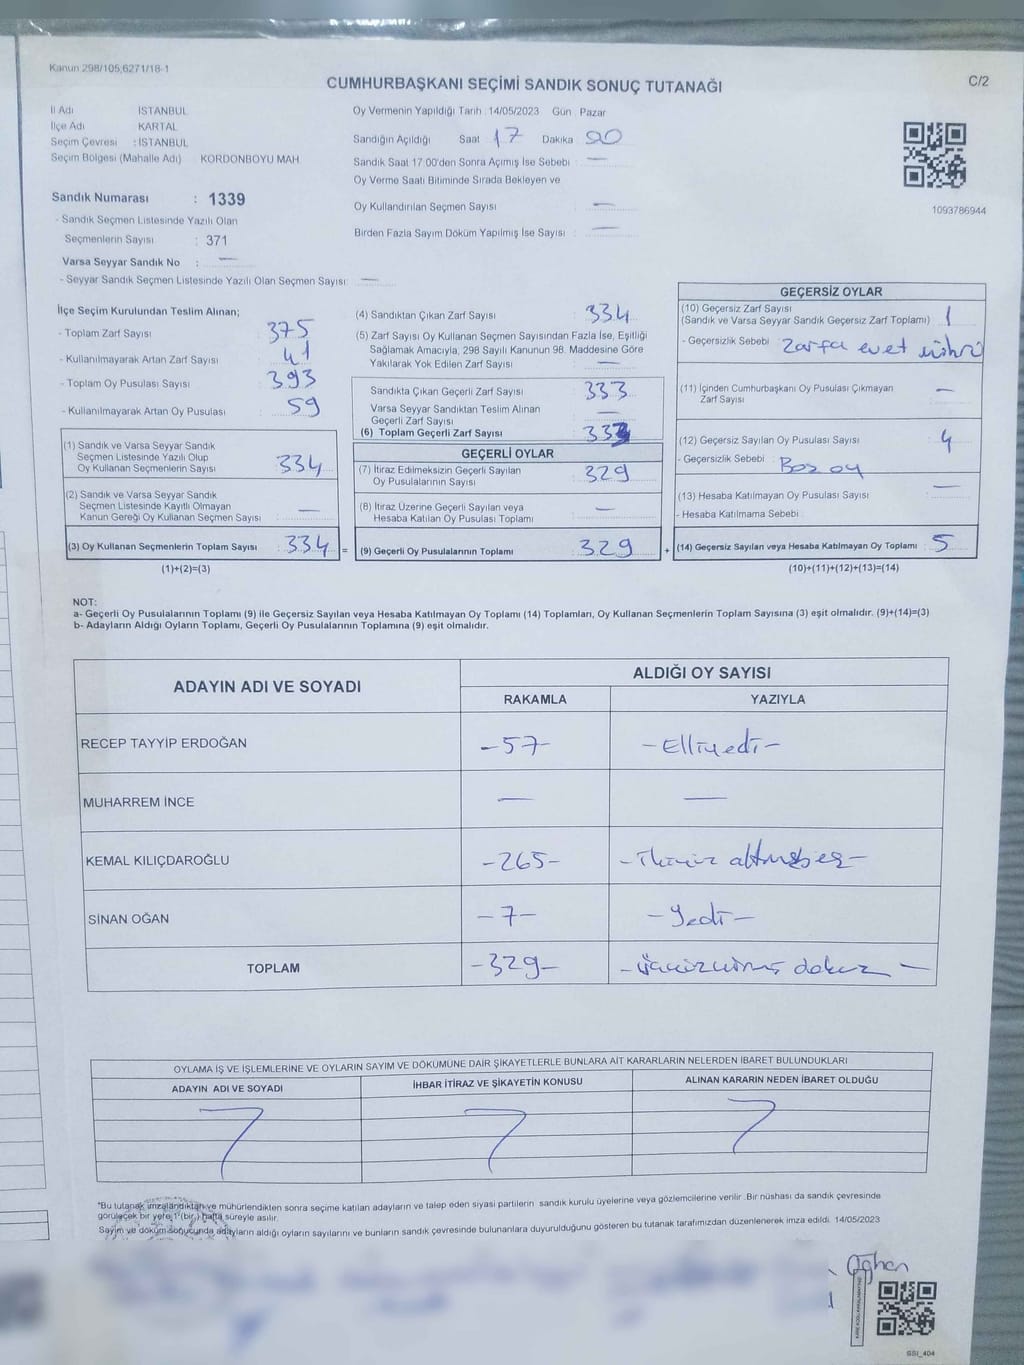 Kanun 298/105,6271/18-1
C/2
CUMHURBAŞKANI SEÇİMİ SANDIK SONUÇ TUTANAĞI
İl Adı İSTANBUL
İlçe Adı KARTAL
Seçim Çevresi : İSTANBUL
Seçim Bölgesi (Mahalle Adı) KORDONBOYU MAH.
Sandık Numarası : 1339
- Sandık Seçmen Listesinde Yazılı Olan
Seçmenlerin Sayısı : 371
Varsa Seyyar Sandık No : —
- Seyyar Sandık Seçmen Listesinde Yazılı Olan Seçmen Sayısı: —
Oy Vermenin Yapıldığı Tarih :14/05/2023 Gün : Pazar
Sandığın Açıldığı Saat 17 Dakika
Sandık Saat 17:00'den Sonra Açımış İse Sebebi : —
Oy Verme Saati Bitiminde Sırada Bekleyen ve
Oy Kullandırılan Seçmen Sayısı —
Birden Fazla Sayım Döküm Yapılmış İse Sayısı —
1093786944
İlçe Seçim Kurulundan Teslim Alınan;
- Toplam Zarf Sayısı : 375
- Kullanılmayarak Artan Zarf Sayısı : 41
- Toplam Oy Pusulası Sayısı : 393
- Kullanılmayarak Artan Oy Pusulası : 59
(1) Sandık ve Varsa Seyyar Sandık
Seçmen Listesinde Yazılı Olup
Oy Kullanan Seçmenlerin Sayısı : 334
(2) Sandık ve Varsa Seyyar Sandık
Seçmen Listesinde Kayıtlı Olmayan
Kanun Gereği Oy Kullanan Seçmen Sayısı : —
(3) Oy Kullanan Seçmenlerin Toplam Sayısı : 334 =
(1)+(2)=(3)
(4) Sandıktan Çıkan Zarf Sayısı : 334
(5) Zarf Sayısı Oy Kullanan Seçmen Sayısından Fazla İse, Eşitliği
Sağlamak Amacıyla, 298 Sayılı Kanunun 98. Maddesine Göre
Yakılarak Yok Edilen Zarf Sayısı : —
Sandıkta Çıkan Geçerli Zarf Sayısı : 333
Varsa Seyyar Sandıktan Teslim Alınan
Geçerli Zarf Sayısı : —
(6) Toplam Geçerli Zarf Sayısı : 333
GEÇERLİ OYLAR
(7) İtiraz Edilmeksizin Geçerli Sayılan
Oy Pusulalarının Sayısı : 329
(8) İtiraz Üzerine Geçerli Sayılan veya
Hesaba Katılan Oy Pusulası Toplamı : —
(9) Geçerli Oy Pusulalarının Toplamı : 329 +
GEÇERSİZ OYLAR
(10) Geçersiz Zarf Sayısı
(Sandık ve Varsa Seyyar Sandık Geçersiz Zarf Toplamı) : 1
- Geçersizlik Sebebi : Zarfa evet mührü
(11) İçinden Cumhurbaşkanı Oy Pusulası Çıkmayan
Zarf Sayısı : —
(12) Geçersiz Sayılan Oy Pusulası Sayısı : 4
- Geçersizlik Sebebi : Boş oy
(13) Hesaba Katılmayan Oy Pusulası Sayısı : —
- Hesaba Katılmama Sebebi :
(14) Geçersiz Sayılan veya Hesaba Katılmayan Oy Toplamı : 5
(10)+(11)+(12)+(13)=(14)
NOT:
a- Geçerli Oy Pusulalarının Toplamı (9) ile Geçersiz Sayılan veya Hesaba Katılmayan Oy Toplamı (14) Toplamları, Oy Kullanan Seçmenlerin Toplam Sayısına (3) eşit olmalıdır. (9)+(14)=(3)
b- Adayların Aldığı Oyların Toplamı, Geçerli Oy Pusulalarının Toplamına (9) eşit olmalıdır.
ADAYIN ADI VE SOYADI ALDIĞI OY SAYISI
RAKAMLA YAZIYLA
RECEP TAYYİP ERDOĞAN -57- -Elliyedi-
MUHARREM İNCE — —
KEMAL KILIÇDAROĞLU -265- -İkiyüz altmışbeş-
SİNAN OĞAN -7- -Yedi-
TOPLAM -329- -üçyüzyirmi dokuz-
OYLAMA İŞ VE İŞLEMLERİNE VE OYLARIN SAYIM VE DÖKÜMÜNE DAİR ŞİKAYETLERLE BUNLARA AİT KARARLARIN NELERDEN İBARET BULUNDUKLARI
ADAYIN ADI VE SOYADI İHBAR İTİRAZ VE ŞİKAYETİN KONUSU ALINAN KARARIN NEDEN İBARET OLDUĞU
*Bu tutanak imzalandıktan ve mühürlendikten sonra seçime katılan adayların ve talep eden siyasi partilerin sandık kurulu üyelerine veya gözlemcilerine verilir. Bir nüshası da sandık çevresinde
görülecek bir yere 1 (bir) hafta süreyle asılır.
Sayım ve döküm sonucunda adayların aldığı oyların sayılarını ve bunların sandık çevresinde bulunanlara duyurulduğunu gösteren bu tutanak tarafımızdan düzenlenerek imza edildi. 14/05/2023
SSI_404